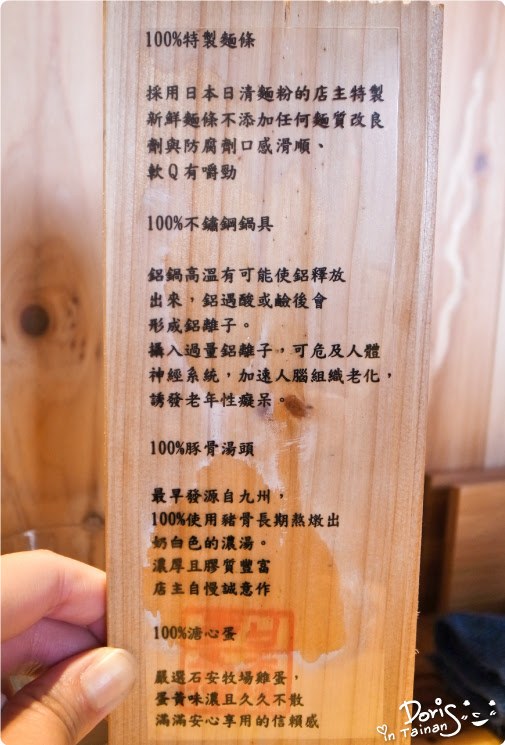 100%特製麵條
採用日本日清麵粉的店主特製
新鮮麵條不添加任何麵質改良
劑與防腐劑口感滑順、
軟Q有嚼勁
100%不鏽鋼鍋具
鋁鍋高溫有可能使鋁釋放
出來，鋁遇酸或鹼後會
形成鋁離子。
攝入過量鋁離子，可危及人體
神經系統，加速人腦組織老化，
誘發老年性癡呆。
100%豚骨湯頭
最早發源自九州，
100%使用豬骨長期熬燉出
奶白色的濃湯。
濃厚且膠質豐富
店主自慢誠意作
100%溏心蛋
嚴選石安牧場雞蛋，
蛋黃味濃且久久不散
滿滿安心享用的信賴感
Doris
in Tainan